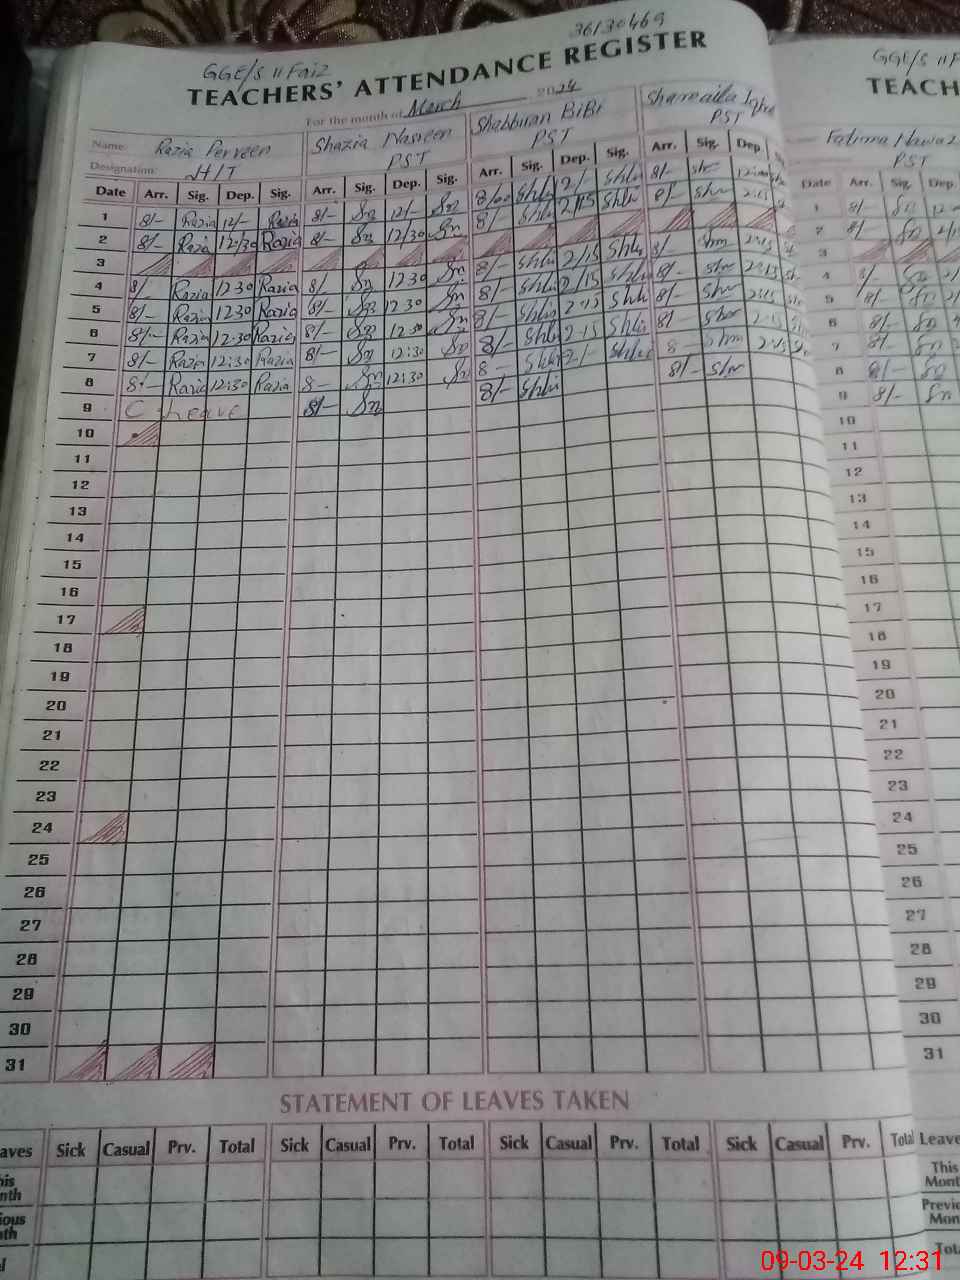 36130469
GGE/S 11 Faiz
GGE/S 11 F
TEACHERS' ATTENDANCE REGISTER
TEACH
For the month of March 2024
Name: Razia Perveen Shazia Nasreen Shabbiran BiBi Fatima Nawaz
Designation: PST PST PST PST
Date Arr. Sig. Dep. Sig. Arr. Sig. Dep. Sig. Arr. Sig. Dep. Sig. Arr. Sig. Dep Date Arr. Sig. Dep.
1 8/- Razia 12/- Razia 8/- Sn 12/- Sn 8/00 Shbi 2/ Shbi 8/- 1 8/- Sn
2 8/- Razia 12/30 Razia 8/- Sn 12/30 Sn 8/- Shbi 2/15 Shbi 8/- Shm 2:15 2 8/- Sn
3 3
4 8/ Razia 12 30 Razia 8/ Sn 12 30 Sn 8/- Shbi 2/15 Shbi 8/- Shm 2:15 4 8/ Sn
5 8/- Razia 12 30 Razia 8/- Sn 12 30 Sn 8/- Shbi 2/15 Shbi 8/- Shm 2:15 5 8/ Sn
6 8/- Razia 12.30 Razia 8/ Sn 12 30 Sn 8/- Shbi 2.15 Shbi 8/- Shm 2:15 6 8/- Sn
7 8/- Razia 12:30 Razia 8/- Sn 12:30 Sn 8/- Shbi 2-15 Shbi 8/ Shm 2.15 7 8/- Sn
8 8/- Razia 12:30 Razia 8- Sn 12:30 Sn 8- Shbi 2/- Shbi 8- Shm 2:15 8 8/- Sn
9 C leave 8/- Sn 8/- Shbi 8/- Shm 9 8/- Sn
10 10
11 11
12 12
13 13
14 14
15 15
16 16
17 17
18 18
19 19
20 20
21 21
22 22
23 23
24 24
25 25
26 26
27 27
28 28
29 29
30 30
31 31
STATEMENT OF LEAVES TAKEN
aves Sick Casual Prv. Total Sick Casual Prv. Total Sick Casual Prv. Total Sick Casual Prv. Total Leave
his This
nth Mont
ious Previo
nth Mon
l Tot
09-03-24 12:31